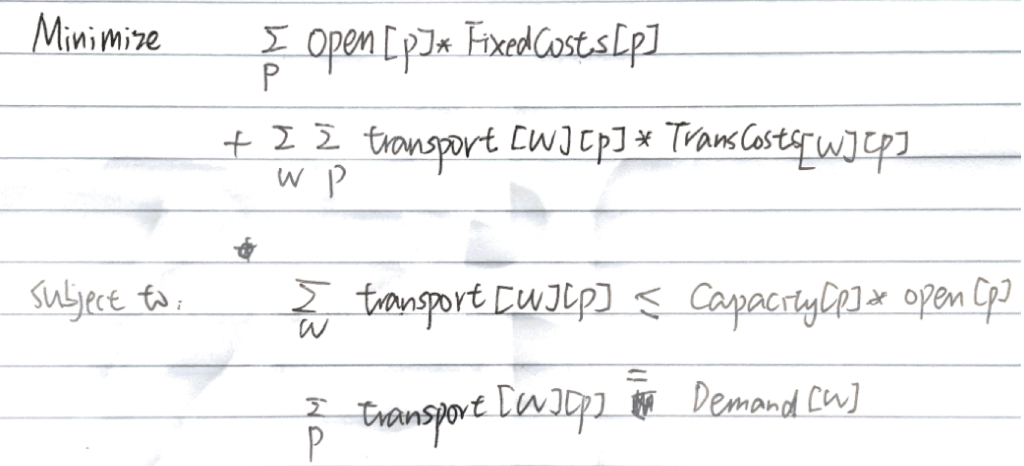 Minimize Σ open[p]* FixedCosts[p]
P
+ Σ Σ transport [W][p] * TransCosts[W][p]
W P
Subject to: Σ transport [W][p] ≤ Capacity[p]* open[p]
W
Σ transport [W][p] = Demand[W]
P